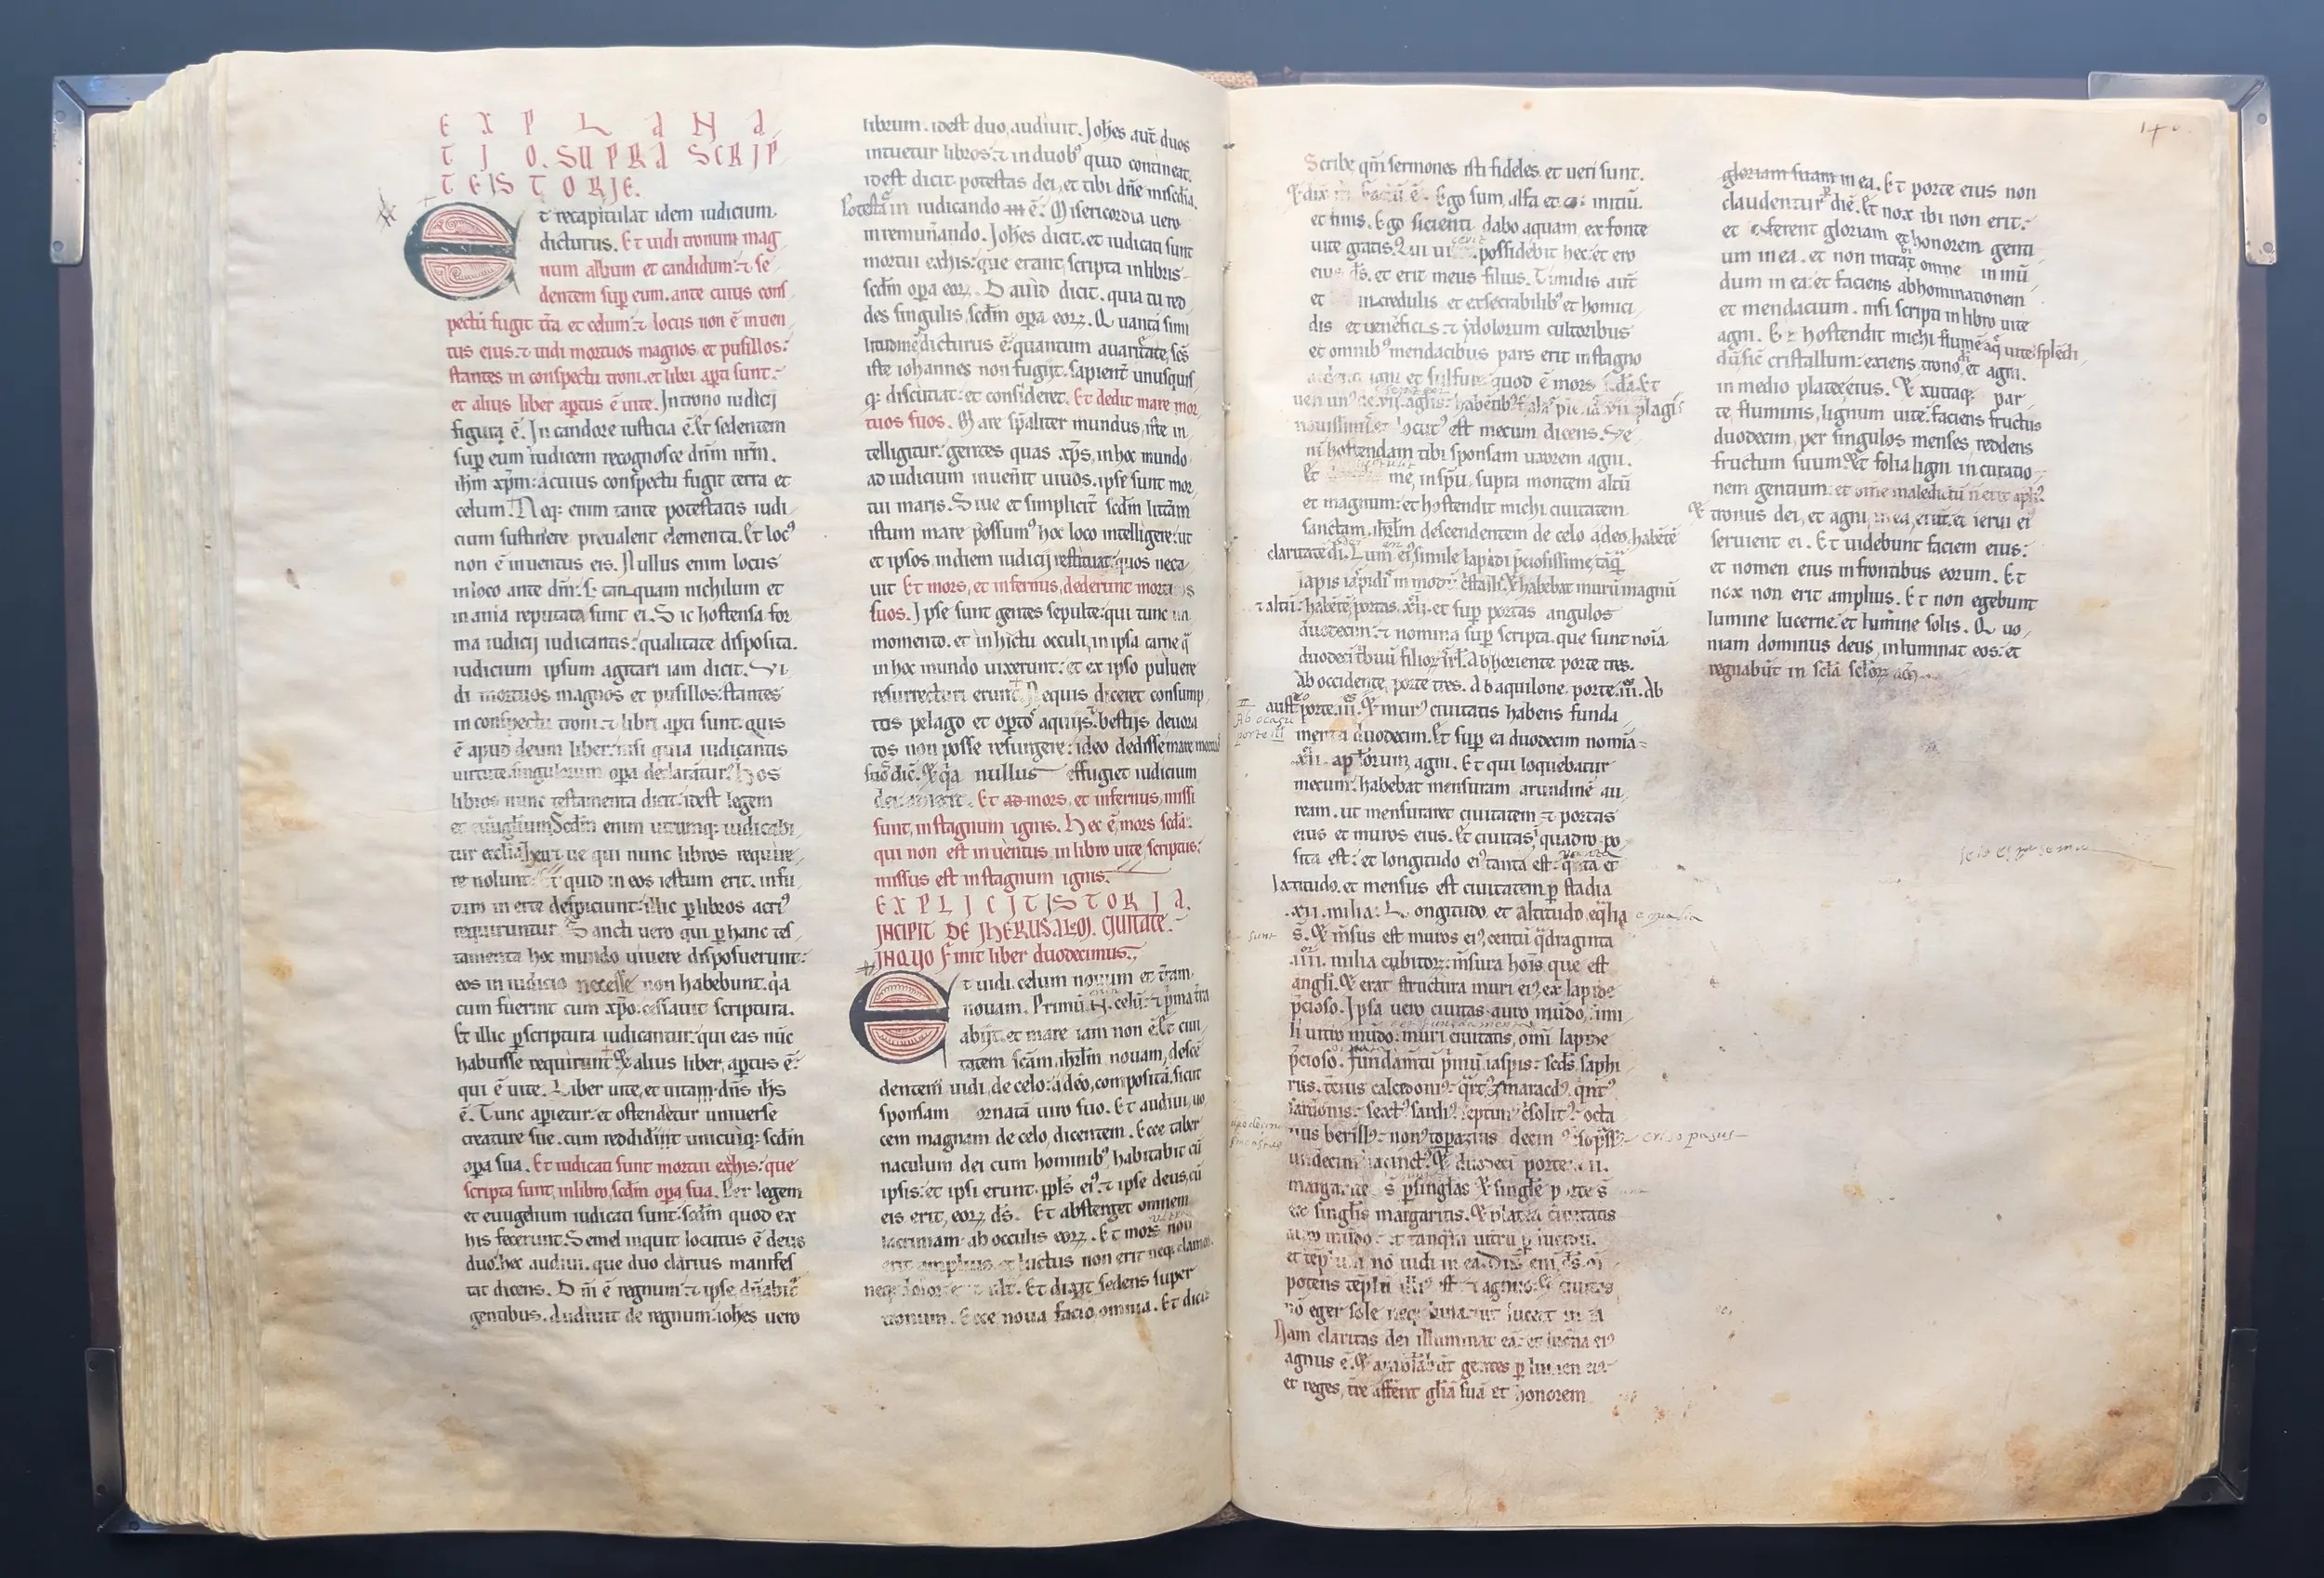 EXPLANA
TIO. SUPRA SCRIP
TE ISTORIE.
Et recapitulat idem iudicium
dicturus. Et uidi tronum mag
num album et candidum: ⁊ se
dentem sup eum. ante cuius cons
pectū fugit tr̄a et celum: ⁊ locus non ē inuen
tus eius: ⁊ uidi mortuos magnos et pusillos:
stantes in conspectu troni. et libri apti sunt:
et alius liber aptus ē uite. In trono iudicij
figura ē. In candore iusticia ē. Et sedentem
sup eum iudicem recognosce dn̄m nr̄m.
ih̄m xp̄m: a cuius conspectu fugit terra et
celum. Neq; enim tante potestatis iudi
cium sustinere preualent elementa. Et loc⁹
non ē inuentus eis. Nullus enim locus
in loco ante dm̄. tanquam nichilum et
inania reputata sunt ei. Sic hostensa for
ma iudicij iudicantis: qualitate disposita.
iudicium ipsum agitari iam dicit. Vi
di mortuos magnos et pusillos: stantes
in conspectu troni. ⁊ libri apti sunt. quis
ē apud deum liber: nisi quia iudicantis
uirtute. singulorum opa declaratur. Hos
libros nunc testamenta dicit: idest legem
et euuglium Scdm̄ enim utrumq; iudicabi
tur ecclia ue qui nunc libros require
re nolunt quid in eos iestum erit. infu
turo in erte despiciunt: illic p libros acri⁹
requiruntur. Sancti uero qui p hanc tes
tamenta hoc mundo uiuere disposuerunt:
eos in iudicio necesse non habebunt. q̄a
cum fuerint cum xp̄o. cessauit scriptura.
Et illic p scriptura iudicantur: qui eas nūc
habuisse requirunt Et alius liber, aptus ē:
qui ē uite. Liber uite, et uitam. dn̄s ih̄s
ē. Tunc apietur: et ostendetur uniuerse
creature sue. cum reddiderit unicuiq; scdm̄
opa sua. Et iudicati sunt mortui exhis: que
scripta sunt, in libro, scdm̄ opa sua. Per legem
et euugelium iudicati sunt: scdm̄ quod ex
his fecerunt. Semel inquit locutus ē deus
duo hec audiui. que duo clarius manifes
tat dicens. Dn̄i ē regnum: ⁊ ipse dn̄abit̄
gentibus. Audiuit de regnum: ioh̄es uero
librum. idest duo, audiuit. Joh̄es aut̄ duos
intuetur libros: ⁊ in duob⁹ quid contineat.
idest dicit potestas dei, et tibi dn̄e mis̄cdia.
Potestā in iudicando ē. Misericordia uero
in remun̄ando. Joh̄es dicit. et iudicati sunt
mortui exhis: que erant, scripta in libris
scdm̄ opa eor̄. Dauid dicit. quia tu red
des singulis, scdm̄ opa eor̄. Quanta simi
litudine dicturus ē: quantum auaritate, scs̄
iste iohannes non fugijt. sapient̄ unusquis
q; discutiat: et consideret. Et dedit mare mor
tuos suos. Mare sp̄aliter mundus, iste in
telligitur: gentes quas xp̄s, in hoc mundo
ad iudicium inuen̄it uiuos. ipse sunt mor
tui maris. Siue et simplicit̄ scdm̄ litt̄am
istum mare possum⁹ hoc loco intelligere: ut
et ipsos, in diem iudicij restituat: quos neca
uit Et mors, et infernus, dederunt mortuos
suos. Ipse sunt gentes sepulte: qui tunc in
momento. et in hictu occuli, in ipsa carne q̄
in hoc mundo uixerunt: et ex ipso puluere
resurrecturi erunt Nequis diceret consump
tis pelago et opto aquijs. bestijs deuora
tos non posse resurgere: ideo dedisse mare mortuos
suos dic̄. Et q̄a nullus effugiet iudicium
dei Et mors, et infernus, missi
sunt, in stagnum ignis. Hec ē, mors scda:
qui non est inuentus, in libro uite, scriptus:
missus est in stagnum ignis.
EXPLICIT ISTORIA.
INCIPIT DE IHERUSALEM. CIUITATE.
IN QUO Finit liber duodecimus.
Et uidi. celum nouum et tr̄am
nouam. Primū N̄. celū: ⁊ pma tr̄a
abijt. et mare iam non ē. Et ciui
tatem sc̄am, ih̄rl̄m nouam, desce
dentem uidi, de celo: a deo, compositā. sicut
sponsam ornatā uiro suo. Et audiui, uo
cem magnam de celo, dicentem. Ecce taber
naculum dei cum hominib⁹, habitabit cū
ipsis: et ipsi erunt. ppls̄ ei⁹. ⁊ ipse deus, cū
eis erit, eor̄ ds̄. Et absterget omnem
lacrimam ab occulis eor̄. Et mors non
erit amplius, et luctus non erit neq; clamor
neq; dolor Et dixit sedens super
tronum. Ecce noua facio, omnia. Et dicit
140
Scribe qm̄ sermones isti fideles et ueri sunt.
Et dix Ego sum, alfa et initiū.
et finis. Ego sicienti, dabo aquam, ex fonte
uite gratis. Qui possidebit hec: et ero
ds̄. et erit meus filius. Timidis aut̄
et incredulis et exsecrabilib⁹ et homici
dis et ueneficis: ⁊ ydolorum cultoribus
et omnib⁹ mendacibus pars erit in stagno
igni et sulfure quod ē mors scda. Et
uen un⁹ de. vii. agl̄is: habentib⁹ fialas plenas. vii plagis
nouissimis. locut⁹ est mecum dicens. Ve
ni hostendam tibi sponsam uxorem agni.
Et me, in sp̄u, supra montem altū
et magnum: et hostendit michi ciuitatem
sanctam, ih̄rl̄m descendentem de celo a deo, habēte
claritatē di. Lum̄ ei⁹, simile lapidi pciosissime, taq̄
lapis iaspidis in modū c̄stalli. Et habebat murū magnū
⁊ altū: habēte portas. xii. et sup portas angulos
duodecim: ⁊ nomina sup scripta. que sunt noīa
duodecī tribuū filior isrl̄. Ab horiente porte tres.
Ab occidente, porte tres. Ab aquilone. porte. iii. Ab
austro porte. iii. Et mur⁹ ciuitatis habens funda
Ab ocasu
porte iii
menta duodecim. Et sup ea duodecim nomia
xii. aplorum, agni. Et qui loquebatur
mecum: habebat mensuram arundinē au
ream. ut mensuraret ciuitatem ⁊ portas
eius et muros eius. Et ciuitas, quadro po
sita est: et longitudo ei⁹ tanta est: quāta et
latitudo. et mensus est ciuitatem p stadia
.xii. milia. Longitudo, et altitudo, eq̄lia
equalia
sunt
s̄. Et m̄sus est muros ei⁹, centū q̄draginta
.iiii. milia cubitor: m̄sura hoīs que est
angli. Et erat structura muri ei⁹ ex lapide
pcioso. Ipsa uero ciuitas auro mūdo, simi
li uitro mūdo: muri ciuitatis, omi lapide
pcioso. Fundam̄tū pmū iaspis: scds̄ saphi
rus. tcius calcedoni⁹: q̄rt⁹ zmaracd⁹. q̄nt⁹
sardonis: sext⁹ sardi⁹. septim⁹ c̄solit⁹: octa
uus berill⁹. non⁹ topazius decim⁹
crisopasus
undecim⁹ iacinct⁹. Et duodeci porte
margarite s̄ p singlas Et singlē porte s̄
ex singlis margaritis. Et platea ciuitatis
auro mūdo: et tanq̄
et tēplum nō uidi in ea. Dn̄s eni ds̄
potens tēplū
nō eget sole neq; luna. ut luceat in ea
Nam claritas dei illuminat eā: et lucna ei⁹
agnus ē. Et ambulabūt gentes p lumen ei⁹
et reges, tr̄e affer̄t gl̄iā suā et honorem
gloriam suam in ea. Et porte eius non
claudentur diē. Et nox ibi non erit:
et afferent gloriam et honorem genti
um in ea. et non intrat omne in mū
dum in ea: et faciens abhominationem
et mendacium. nisi scripti in libro uite
agni. Et hostendit michi flumē aq̄ uite, splēdi
dū sic̄ cristallum: exiens, trono, di et agni.
in medio platee eius. Et ex utraq; par
te fluminis, lignum uite: faciens fructus
duodecim, per singulos menses, reddens
fructum suum. Et folia ligni in curatio
nem gentium: et om̄e maledictū n̄ erit apl⁹
Et tronus dei, et agni, in ea, erūt. et serui ei
seruient ei. Et uidebunt faciem eius:
et nomen eius in frontibus eorum. Et
nox non erit amplius. Et non egebunt
lumine lucerne: et lumine solis. Quo
niam dominus deus, inluminat eos: et
regnabūt in sc̄la sc̄lor̄